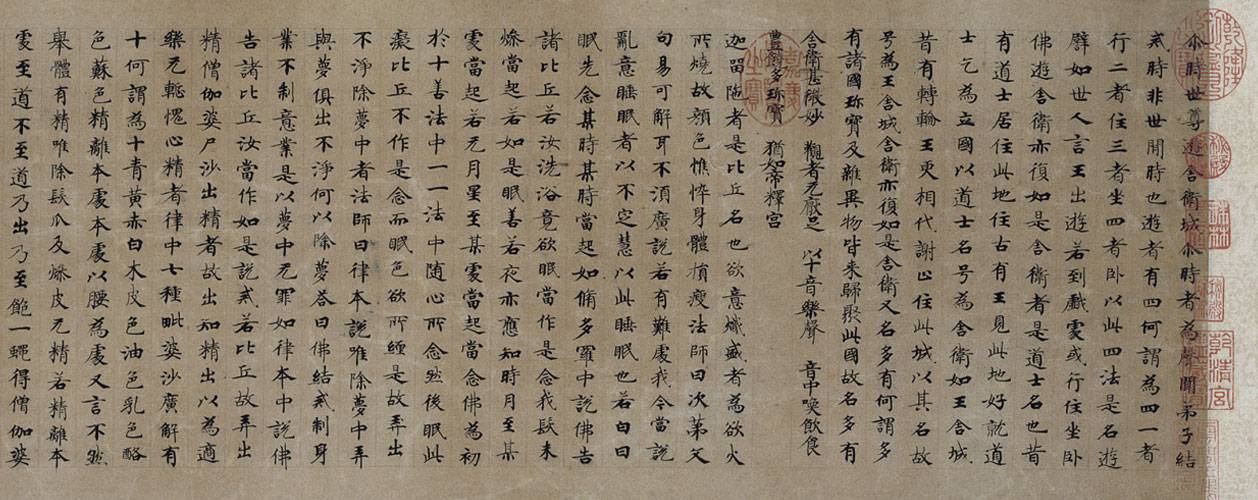 尒時世尊遊舍衛城尒時者為聲聞弟子結
戒時非世間時也遊者有四何謂為四一者
行二者住三者坐四者卧以此四法是名遊
譬如世人言王出遊若到戲處或行住坐卧
佛遊舍衛亦復如是舍衛者是道士名也昔
有道士居住此地往古有王見此地好就道
士乞為立國以道士名号為舍衛如王舍城
昔有轉輪王更相代謝止住此城以其名故
号為王舍城舍衛亦復如是舍衛又名多有何謂多
有諸國珍寶及雜異物皆来歸聚此國故名多有
舍衛甚微妙 觀者无厭足 以十音樂聲 音中喚飲食
豐饒多珍寶 猶如帝釋宮
迦留陁者是比丘名也欲意熾盛者為欲火
所燒故顏色憔悴身體損瘦法師曰次第文
句易可解耳不須廣說若有難處我今當說
亂意睡眠者以不定慧以此睡眠也若白日
眠先念某時某時當起如脩多羅中說佛告
諸比丘若汝洗浴竟欲眠當作是念我髮未
燥當起若如是眠善若夜亦應知時月至某
處當起若无月星至某處當起當念佛為初
於十善法中一一法中随心所念然後眠此
癡比丘不作是念而眠色欲所纏是故弄出
不淨除夢中者法師曰律本說唯除夢中弄
與夢俱出不淨何以除夢荅曰佛結戒制身
業不制意業是以夢中无罪如律本中說佛
告諸比丘汝當作如是說戒若比丘故弄出
精僧伽婆尸沙出精者故出知精出以為適
樂无慙愧心精者律中七種毗婆沙廣解有
十何謂為十青黃赤白木皮色油色乳色酪
色蘇色精離本處本處以腰為處又言不然
舉體有精唯除髮爪及燥皮无精若精離本
處至道不至道乃出乃至飽一蠅得僧伽婆
乾清宮